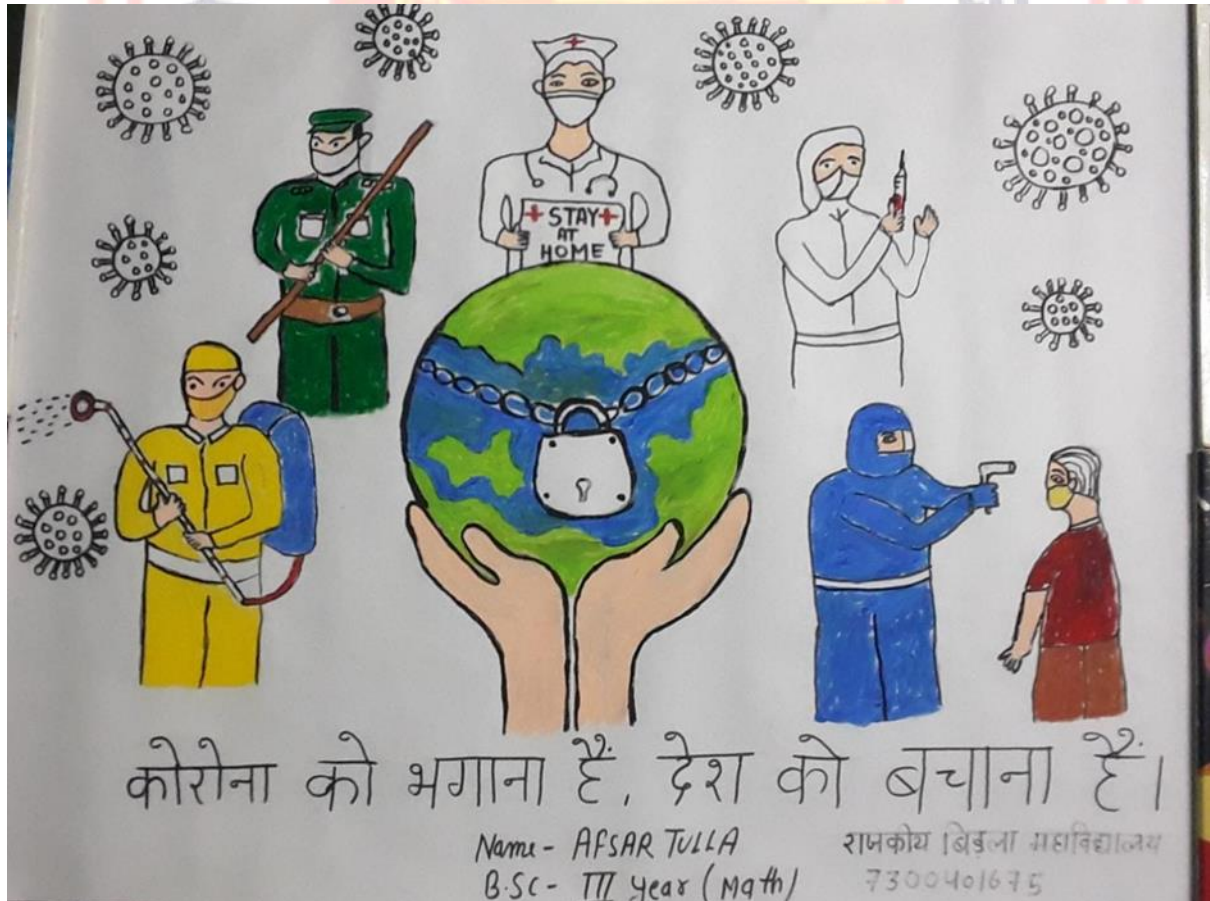 + STAY +
AT
HOME
कोरोना को भगाना हैं, देश को बचाना हैं।
Name - AFSAR TULLA
B.SC - III year (Math)
राजकीय बिड़ला महाविद्यालय
7300401675